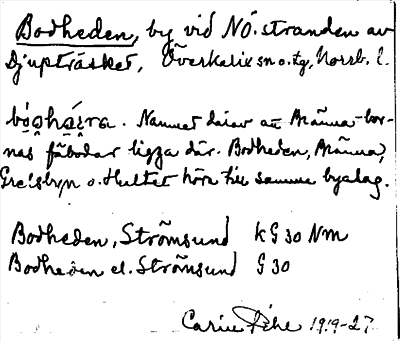 Bodheden, by vid NÖ. stranden av
Djupträsket, Överkalix sn o. tg, Norrb. l.
Namnet därav att Männa-bor-
nas fäbodar ligga där. Bodheden, Männä,
Grelsbyn o. Hultet höra till samma byalag.
Bodheden, Strömsund KG 30 Nm
Bodheden el. Strömsund G 30
Carin Pihl 1919-27